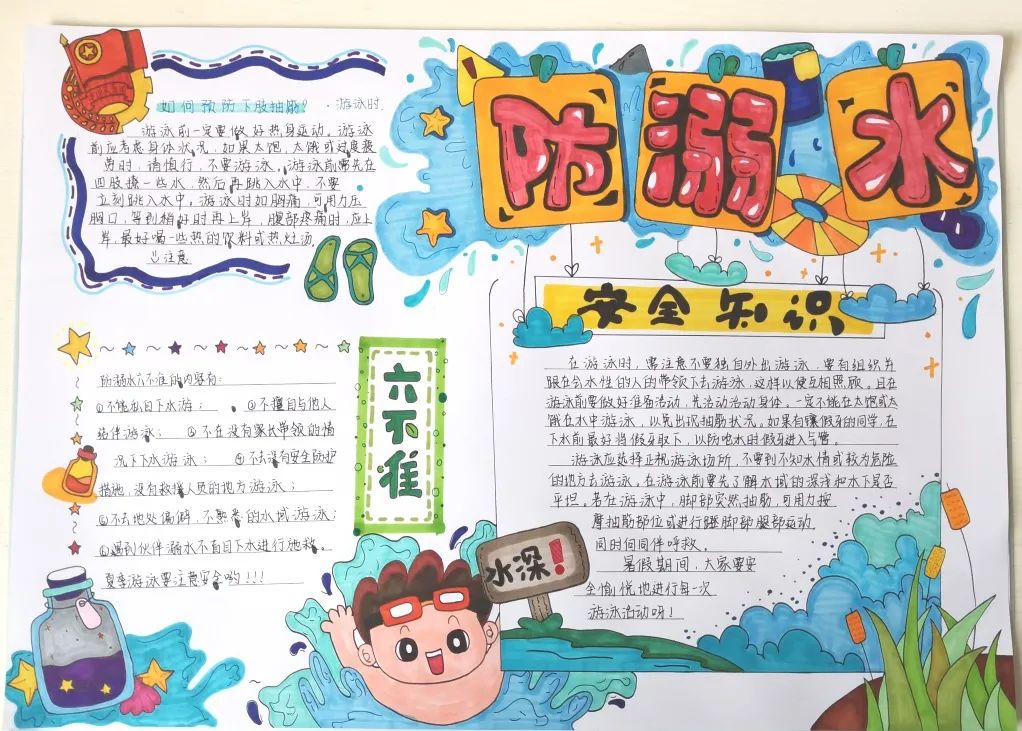 防溺水
如何预防下肢抽筋?·游泳时
游泳前一定要做好热身运动。游泳
前应考虑身体状况，如果太饱，太饿或过度疲
劳时，请慎行，不要游泳。游泳前需先在
四肢撩一些水，然后再跳入水中，不要
立刻跳入水中。游泳时如胸痛，可用力压
胸口，等到稍好时再上岸，腹部疼痛时，应上
岸，最好喝一些热的饮料或热汤
注意
六不准
防溺水六不准的内容有:
①不能私自下水游泳; ②不擅自与他人
结伴游泳; ③不在没有家长带领的情
况下下水游泳; ④不去没有安全防护
措施，没有救援人员的地方游泳;
⑤不去地处偏僻，不熟悉的水域游泳;
⑥遇到伙伴溺水不盲目下水进行施救。
夏季游泳要注意安全哟!!!
安全知识
在游泳时，需注意不要独自外出游泳，要有组织并
跟在会水性的人的带领下去游泳，这样以便互相照顾。且在
游泳前要做好准备活动，先活动活动身体。一定不能在太饱或太
饿在水中游泳，以免出现抽筋状况。如果有镶假牙的同学，在
下水前最好将假牙取下，以防呛水时假牙进入气管。
游泳应选择正规游泳场所，不要到不知水情或较为危险
的地方去游泳。在游泳前要先了解水域的深浅和水下是否
平坦。若在游泳中，脚部突然抽筋，可用力按
摩抽筋部位或进行蹬脚部腿部运动，
同时向同伴呼救。
暑假期间，大家要安
全愉悦地进行每一次
游泳活动呀!
水深!